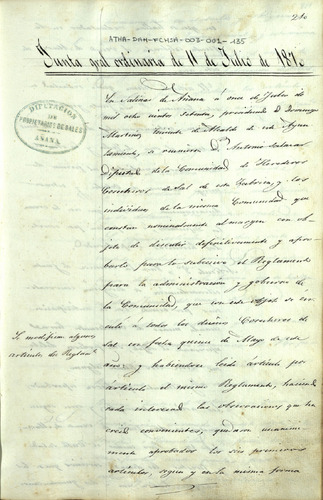 210
ATHA-DAH-FCHSA-003-001-135
Junta gral ordinaria de 11 de Julio de 187
DIPUTACION
DE
PROPIETARIOS DE SALES
AÑANA
En Salinas de Añana á once de Julio de
mil ocho cientos setenta, presidiendo D. Domingo
Martinez teniente de Alcalde de este Ayun
tamiento, se reunieron D. Antonio Salazar
Diputado de la Comunidad de Herederos
Cosecheros de Sal de esta Salina, y los
individuos de la misma Comunidad que
constan nominalmente al margen con ob-
jeto de discutir definitivamente y apro-
barle para lo subcesivo el Reglamento
para la administracion y gobierno de
la Comunidad, que con este objeto se cir-
culó á todos los dueños Cosecheros de
Sal en fecha quince de Mayo de este
año; y habiendose leido articulo por
articulo el mismo Reglamento, haciendo
cada interesad las observaciones que ha
creido convenientes, quedaron unanime
mente aprobados los seis primeros
articulos, segun y en la misma forma
Se modifican algunos
articulos del Reglamto